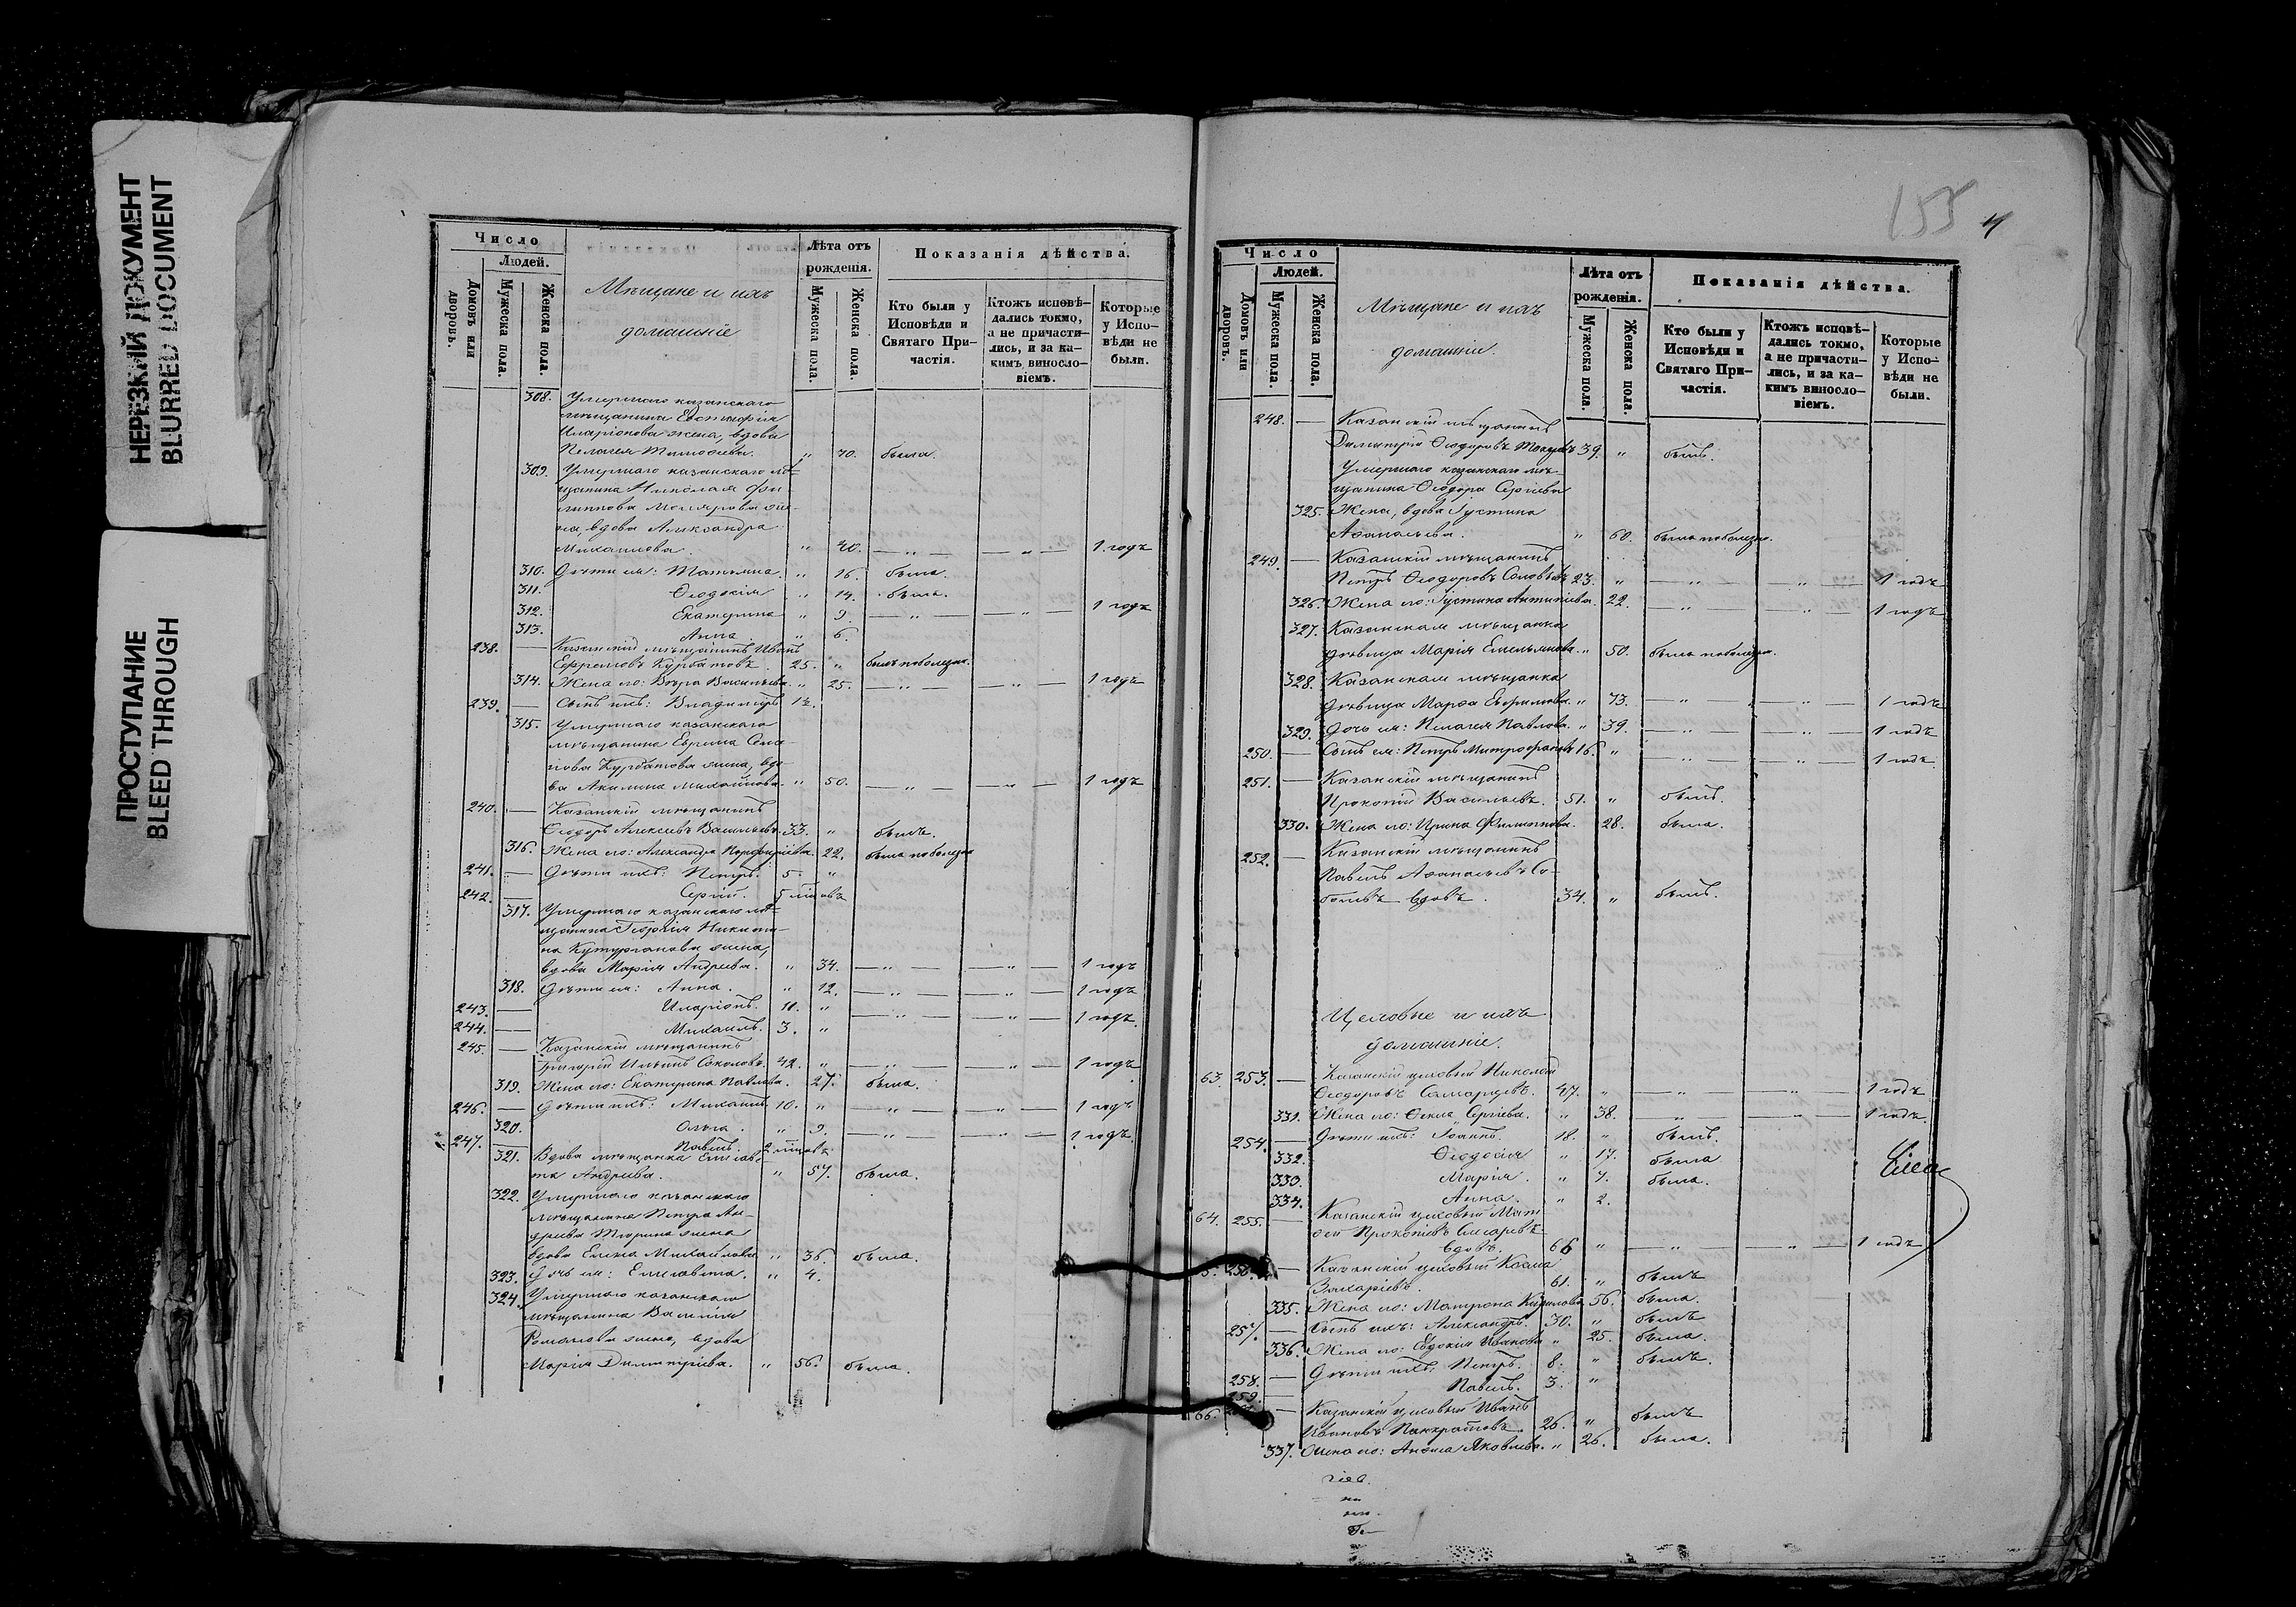 НЕРЕЗКИЙ ДОКУМЕНТ
BLURRED DOCUMENT
ПРОСТУПАНИЕ
BLEED THROUGH
Число
Людей.
Домовъ или дворовъ.
Мужеска пола.
Женска пола.
Мѣщане и ихъ
домашніе
Лѣта отъ рожденія.
Мужеска пола.
Женска пола.
Показанія дѣйства.
Кто были у Исповѣди и Святаго Причастія.
Ктожъ исповѣдались токмо, а не причастились, и за какимъ винословіемъ.
Которые у Исповѣди не были.
308. Умершаго казанскаго
мѣщанина Евстафія
Иларіонова жена, вдова
Пелагея Тимофеева. " 70. была.
309. Умершаго казанскаго мѣ-
щанина Николая Фи-
липпова жe-
на, вдова Александра
Михаилова. " 40. — " — " — 1 годъ
310. Дѣти ея: Татьяна. " 16. была.
311. Ѳеодосія " 14. была.
312. Екатерина " 9. — " — " — 1 годъ
313. Анна " 6.
238. — Казанскій мѣщанинъ Иванъ
Ефремовъ Курбатовъ. 25. " былъ поболезни.
314. Жена его: Вѣра Васильева. " 25. — " — " — 1 годъ
239. — Сынъ ихъ: Владиміръ 1½.
315. Умершаго казанскаго
мѣщанина Ефрема
Курбатова жена, вдо-
ва Акилина Михайлова. " 50. — " — " — 1 годъ
240. — Казанскій мѣщанинъ
Ѳеодоръ Алексѣевъ Васильевъ. 33. " былъ.
316. Жена его: Александра Порфирьева. 22. была поболезни
241. — Дѣти ихъ: Петръ. 5. "
242. — Сергій. 5 мѣсяцовъ
317. Умершаго казанскаго мѣ-
щанина Георгія Никити-
на жена,
вдова Марія Андреева. " 34. — " — " — 1 годъ
318. Дѣти ея: Анна. " 12. — " — " — 1 годъ
243. — Иларіонъ. 10. " — " — " — 1 годъ
244. — Михаилъ. 3. "
245. — Казанскій мѣщанинъ
Григорій Ильинъ Соколовъ. 42. " — " — " — 1 годъ
319. Жена его: Екатерина Павлова. 27. была.
246. — Дѣти ихъ: Михаилъ. 10. " — " — " — 1 годъ
320. Ольга. " 9. — " — " — 1 годъ
247. Павелъ. 2 мѣсяцовъ
321. Вдова мѣщанка Елисаве-
та Андреева. " 57. была.
322. Умершаго казанскаго
мѣщанина Петра Ан-
дреева Тюрина жена
вдова Елена Михайлова " 36. была.
323. Дочь ея: Елисавета. " 4.
324. Умершаго казанскаго
мѣщанина Василія
Романова жена, вдова
Марія Димитріева. " 56. была.
155
Число
Людей.
Домовъ или дворовъ.
Мужеска пола.
Женска пола.
Мѣщане и ихъ
домашніе.
Лѣта отъ рожденія.
Мужеска пола.
Женска пола.
Показанія дѣйства.
Кто были у Исповѣди и Святаго Причастія.
Ктожъ исповѣдались токмо, а не причастились, и за какимъ винословіемъ.
Которые у Исповѣди не были.
248. — Казанскій мѣщанинъ
Димитрій Ѳеодоровъ 39. " былъ.
Умершаго казанскаго мѣ-
щанина Ѳеодора Сергіева
325. Жена, вдова Іустина
Аѳанасьева. " 60. была поболезни.
249. — Казанскій мѣщанинъ
Петръ Ѳеодоровъ Соловьевъ 23. " — " — " — 1 годъ
326. Жена его: Іустина Антипіева. 22. — " — " — 1 годъ
327. Казанская мѣщанка
дѣвица Марія Емельянова. " 50. была поболезни.
328. Казанская мѣщанка
дѣвица Марѳа Ефимова. " 73. — " — " — 1 годъ
329. Дочь ея: Пелагея Павлова. " 39. — " — " — 1 годъ
250. — Сынъ ея: Петръ Митрофановъ 16. " — " — " — 1 годъ
251. — Казанскій мѣщанинъ
Прокопій Васильевъ. 51. " былъ.
330. Жена его: Ирина Филиппова. 28. была.
252. — Казанскій мѣщанинъ
Павелъ Аѳанасьевъ Со-
болевъ вдовъ. 34. " былъ.
Цеховые и ихъ
домашніе.
63. 253. — Казанскій цеховый Николай
Ѳеодоровъ Самарцевъ. 47. " — " — " — 1 годъ
331. Жена его: Ѳекла Сергіева. " 38. — " — " — 1 годъ
254. — Дѣти ихъ: Іоаннъ. 18. " былъ.
332. Ѳеодосія " 17. была
333. Марія. " 7. была.
334. Анна. " 2.
64. 255. — Казанскій цеховый Мат-
ѳей Прокопіевъ
вдовъ. 66 " — " — " — 1 годъ
256. — Казанскій цеховый Козма
Захаріевъ. 61. " былъ
335. Жена его: Матрона Кирилова. 56. была.
257. — Сынъ ихъ: Александръ. 30. " былъ
336. Жена его: Евдокія Иванова " 25. была.
258. — Дѣти ихъ: Петръ. 8. " былъ.
259. — Павелъ. 3. "
66. — Казанскій цеховый Иванъ
Ивановъ Панкратовъ. 26. " былъ
337. Жена его: Анѳиса Яковлева. " 26. была.